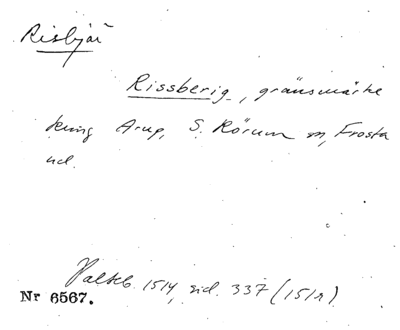 Risbjär
Rissberig, gränsmärke
kring Arup, S. Rörum sn, Frosta
hd.
Palteb. 1514, sid. 337 (1511)
Nr 6567.